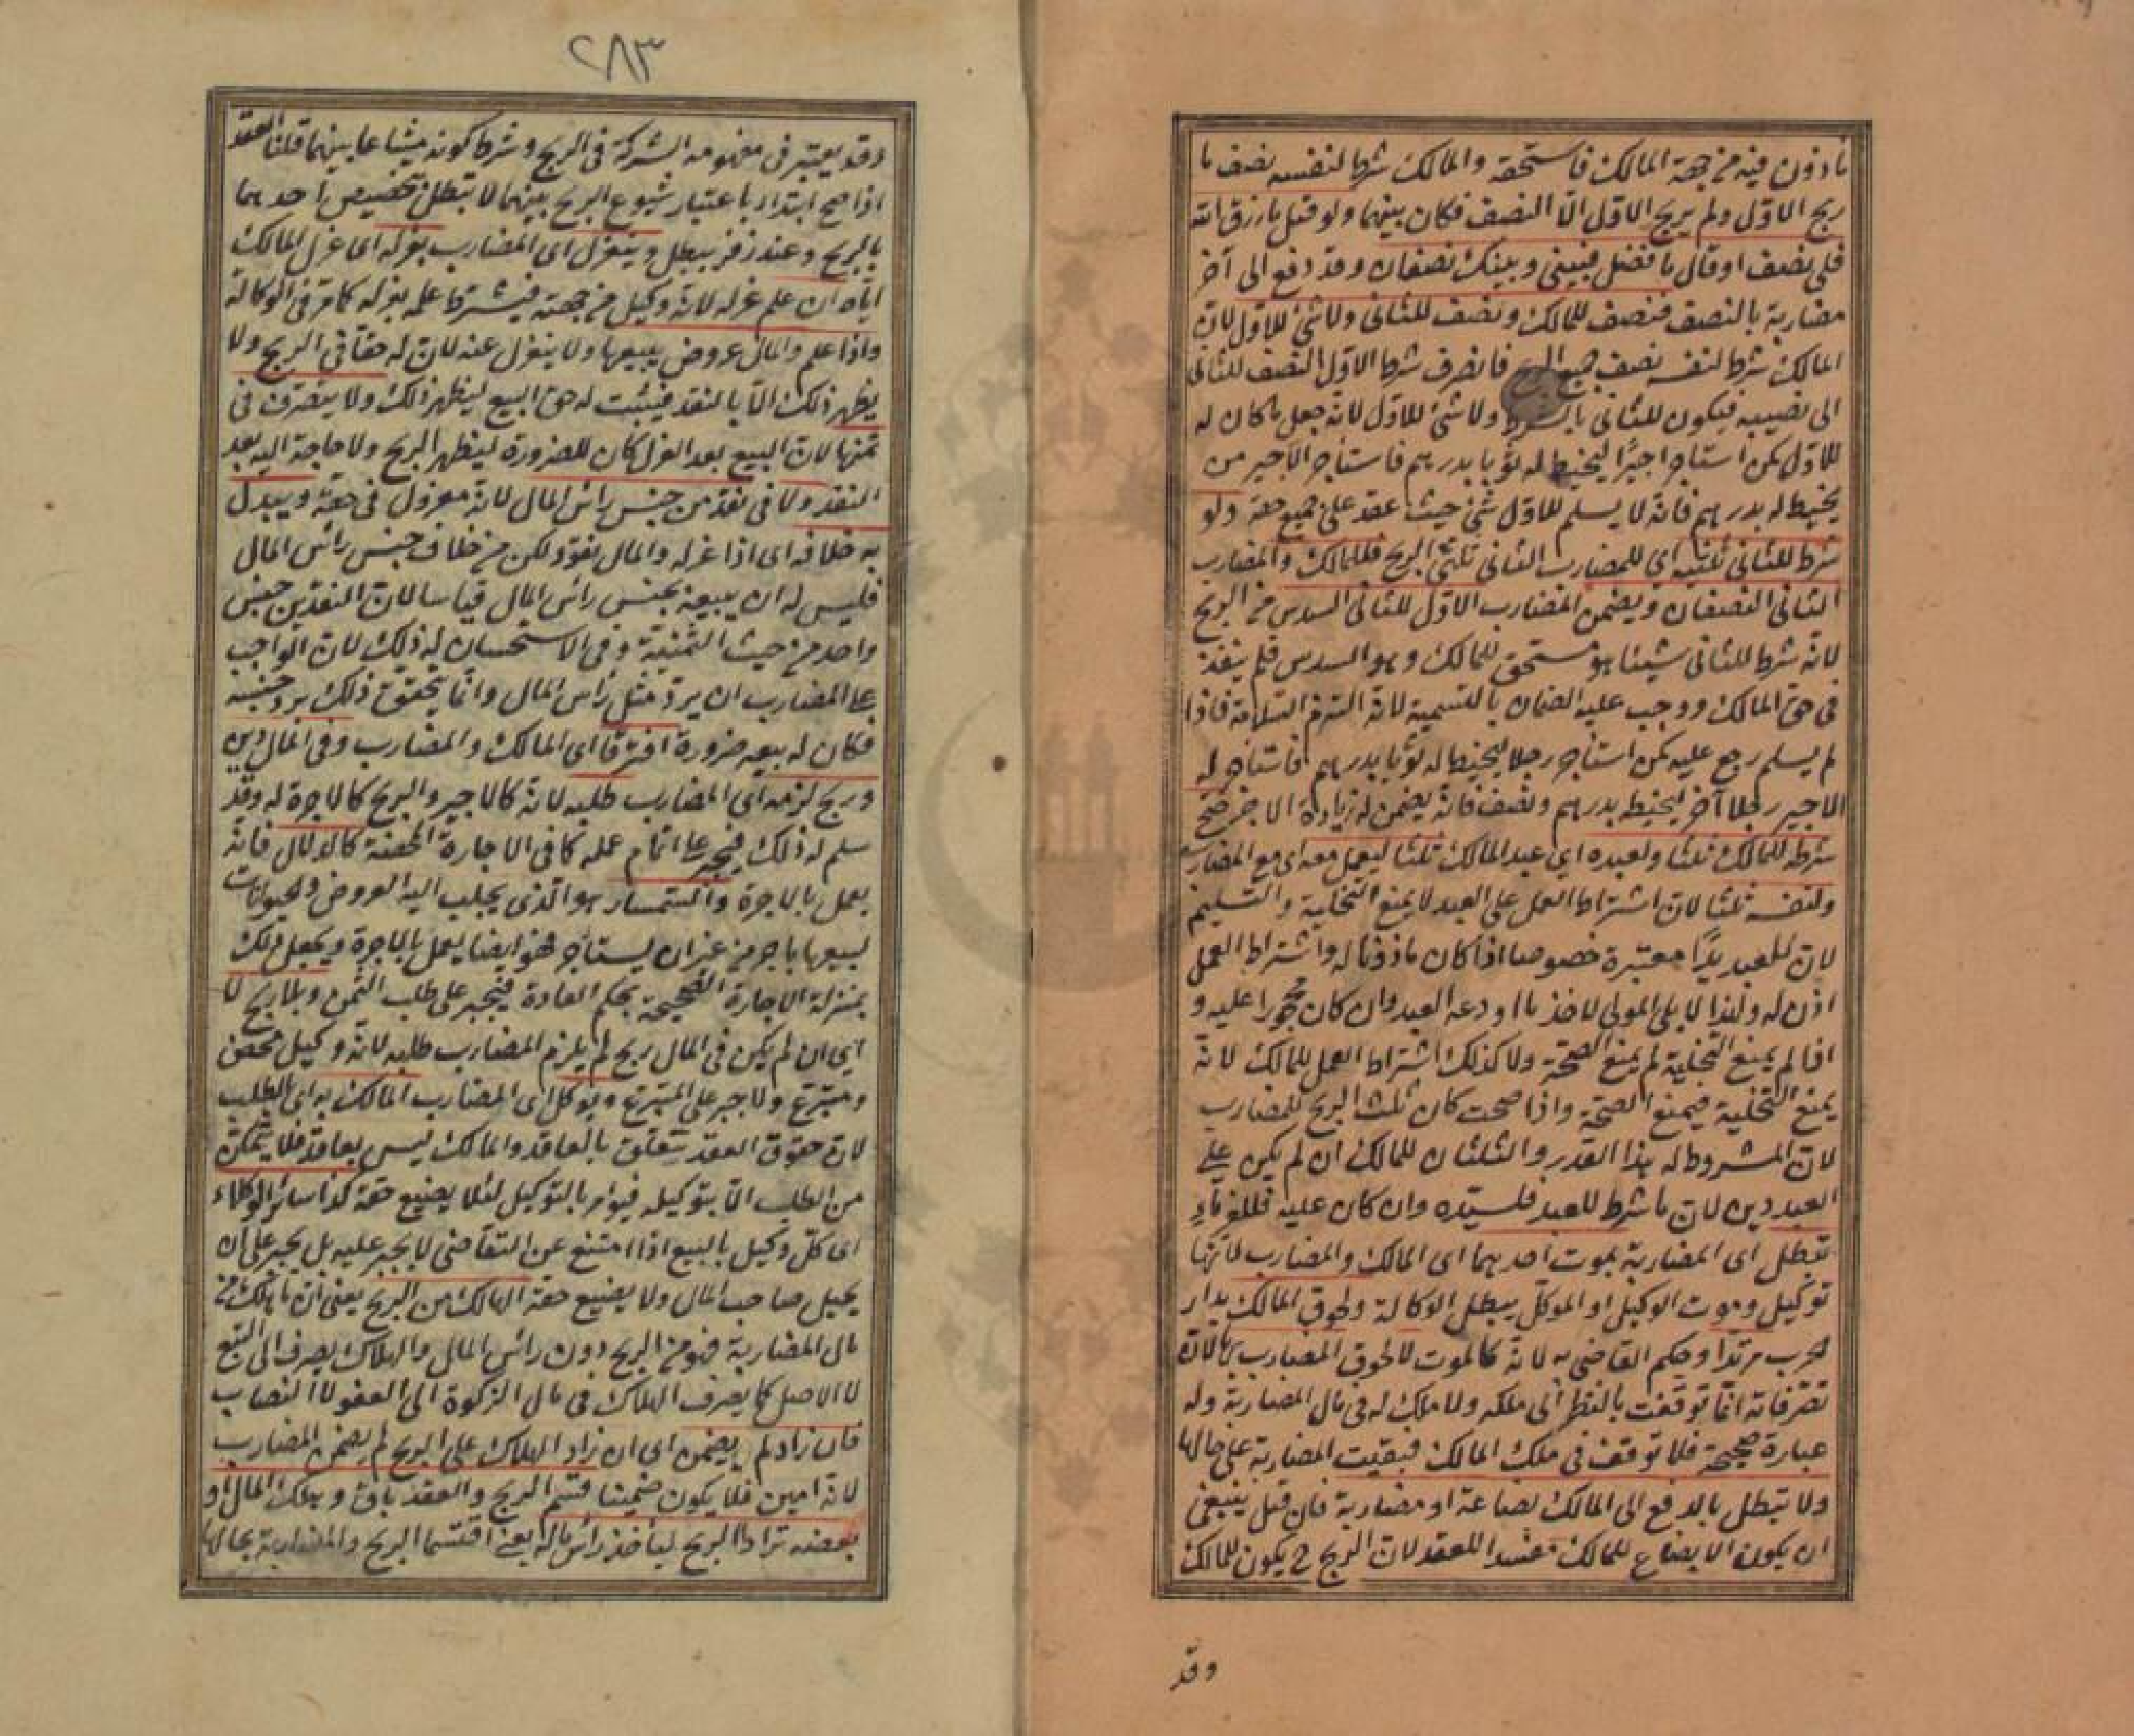 مأذون فيه من جهة المالك فاستحقه والمالك شرط لنفسه نصف ما
ربح الاول ولم يربح الاول الا النصف فكان بينهما ولو قيل ما رزق الله
فلى نصف او قال ما فضل فبينى وبينك نصفان وقد دفع الى آخر
مضاربة بالنصف فنصف للمالك ونصف للثانى ولا شئ للاول لان
المالك شرط لنفسه نصف جميع الربح فانصرف شرط الاول النصف للثانى
الى نصيبه فيكون للثانى بالشرط ولا شئ للاول لانه جعل ما كان له
للاول كمن استأجر اجيرا ليخيط له ثوبا بدرهم فاستأجر الاجير من
يخيط له بدرهم فانه لا يسلم للاول شئ حيث عقد على جميع حقه ولو
شرط للثانى ثلثيه اى للمضارب الثانى ثلثى الربح فللمالك والمضارب
الثانى النصفان ويضمن المضارب الاول للثانى السدس من الربح
لانه شرط للثانى شيئا هو مستحق للمالك وهو السدس فلم ينفذ
فى حق المالك ووجب عليه الضمان بالتسمية لانه التزم السلامة فاذا
لم يسلم رجع عليه كمن استأجر رجلا ليخيط له ثوبا بدرهم فاستأجر له
الاجير رجلا آخر ليخيطه بدرهم ونصف فانه يضمن له زيادة الاجر صح
شرطه للمالك ثلثا ولعبده اى عبد المالك ثلثا ليعمل معه اى مع المضارب
ولنفسه ثلثا لان اشتراط العمل على العبد لا يمنع التخلية والتسليم
لان للعبد يدا معتبرة خصوصا اذا كان مأذونا له واشتراط العمل
اذن له ولهذا لا يلى المولى لاخذ ما اودعه العبد وان كان محجورا عليه و
اذا لم يمنع التخلية لم يمنع الصحة ولا كذلك اشتراط العمل للمالك لانه
يمنع التخلية فيمنع الصحة واذا صحت كان ثلث الربح للمضارب
لان المشروط له هذا القدر والثلثان للمالك ان لم يكن على
العبد دين لان ما شرط للعبد فلسيده وان كان عليه فللغرماء
تبطل اى المضاربة بموت احدهما اى المالك والمضارب لانها
توكيل وموت الوكيل او الموكل يبطل الوكالة ولحوق المالك بدار
الحرب مرتدا وحكم القاضى به لانه كالموت لا لحوق المضارب بها لان
تصرفاته انما توقفت بالنظر الى ملكه ولا ملك له فى مال المضاربة وله
عبارة صحيحة فلا توقف فى ملك المالك فبقيت المضاربة على حالها
ولا تبطل بالدفع الى المالك بضاعة او مضاربة فان قيل ينبغى
ان يكون الابضاع للمالك مفسدا للعقد لان الربح ح يكون للمالك
وقد
٢٨٣
وقد يعتبر فى مفهومه الشركة فى الربح وشرط كونه مشاعا بينهما قلنا العقد
اذا صح ابتداء باعتبار شيوع الربح بينهما لا تبطل تخصيص احدهما
بالربح وعند زفر يبطل وينعزل اى المضارب بعزله اى عزل المالك
اياه ان علم عزله لانه وكيل من جهته فيشترط علمه بعزله كما مر فى الوكالة
واذا علم والمال عروض يبيعها ولا ينعزل عنه لان له حقا فى الربح ولا
يظهر ذلك الا بالنقد فيثبت له حق البيع ليظهر ذلك ولا يتصرف فى
ثمنها لان البيع بعد العزل كان للضرورة ليظهر الربح ولا حاجة اليه بعد
النقد ولا فى نقد من جنس رأس المال لانه معزول فى حقه ويبدل
به خلافه اى اذا عزله والمال نقود لكن من خلاف جنس رأس المال
فليس له ان يبيعه بجنس رأس المال قياسا لان النقدين جنس
واحد من حيث الثمنية وفى الاستحسان له ذلك لان الواجب
على المضارب ان يرد مثل رأس المال وانما يتحقق ذلك برد جنسه
فكان له بيعه ضرورة افترقا اى المالك والمضارب وفى المال دين
وربح لزمه اى المضارب طلبه لانه كالاجير والربح كالاجرة له وقد
سلم له ذلك فيجبر على اتمام عمله كما فى الاجارة المحضة كالدلال فانه
يعمل بالاجرة والسمسار هو الذى يجلب اليه العروض والحيوانات
لبيعها باجر من غير ان يستأجر فهو ايضا يعمل بالاجرة ويجعل ذلك
بمنزلة الاجارة الصحيحة بحكم العادة فيجبر على طلب الثمن وبلا ربح لا
اى ان لم يكن فى المال ربح لم يلزم المضارب طلبه لانه وكيل محض
ومتبرع ولا جبر على المتبرع ويوكل اى المضارب المالك به اى الطلب
لان حقوق العقد تتعلق بالعاقد والمالك ليس بعاقد فلا يتمكن
من الطلب الا بتوكيله فيؤمر بالتوكيل لئلا يضيع حقه كذا سائر الوكلاء
اى كل وكيل بالبيع اذا امتنع عن التقاضى لا يجبر عليه بل يجبر على ان
يحيل صاحب المال ولا يضيع حقه الهالك من الربح يعنى ان ما هلك من
مال المضاربة فهو من الربح دون رأس المال والهلاك يصرف الى التبع
لا الاصل كما يصرف الهلاك فى مال الزكوة الى العفو لا النصاب
فان زاد لم يضمن اى ان زاد الهلاك على الربح لم يضمن المضارب
لانه امين فلا يكون ضمينا قسم الربح والعقد باق وهلك المال او
بعضه ترادا الربح ليأخذ رأس ماله يعنى اقتسما الربح والمضاربة بحالها